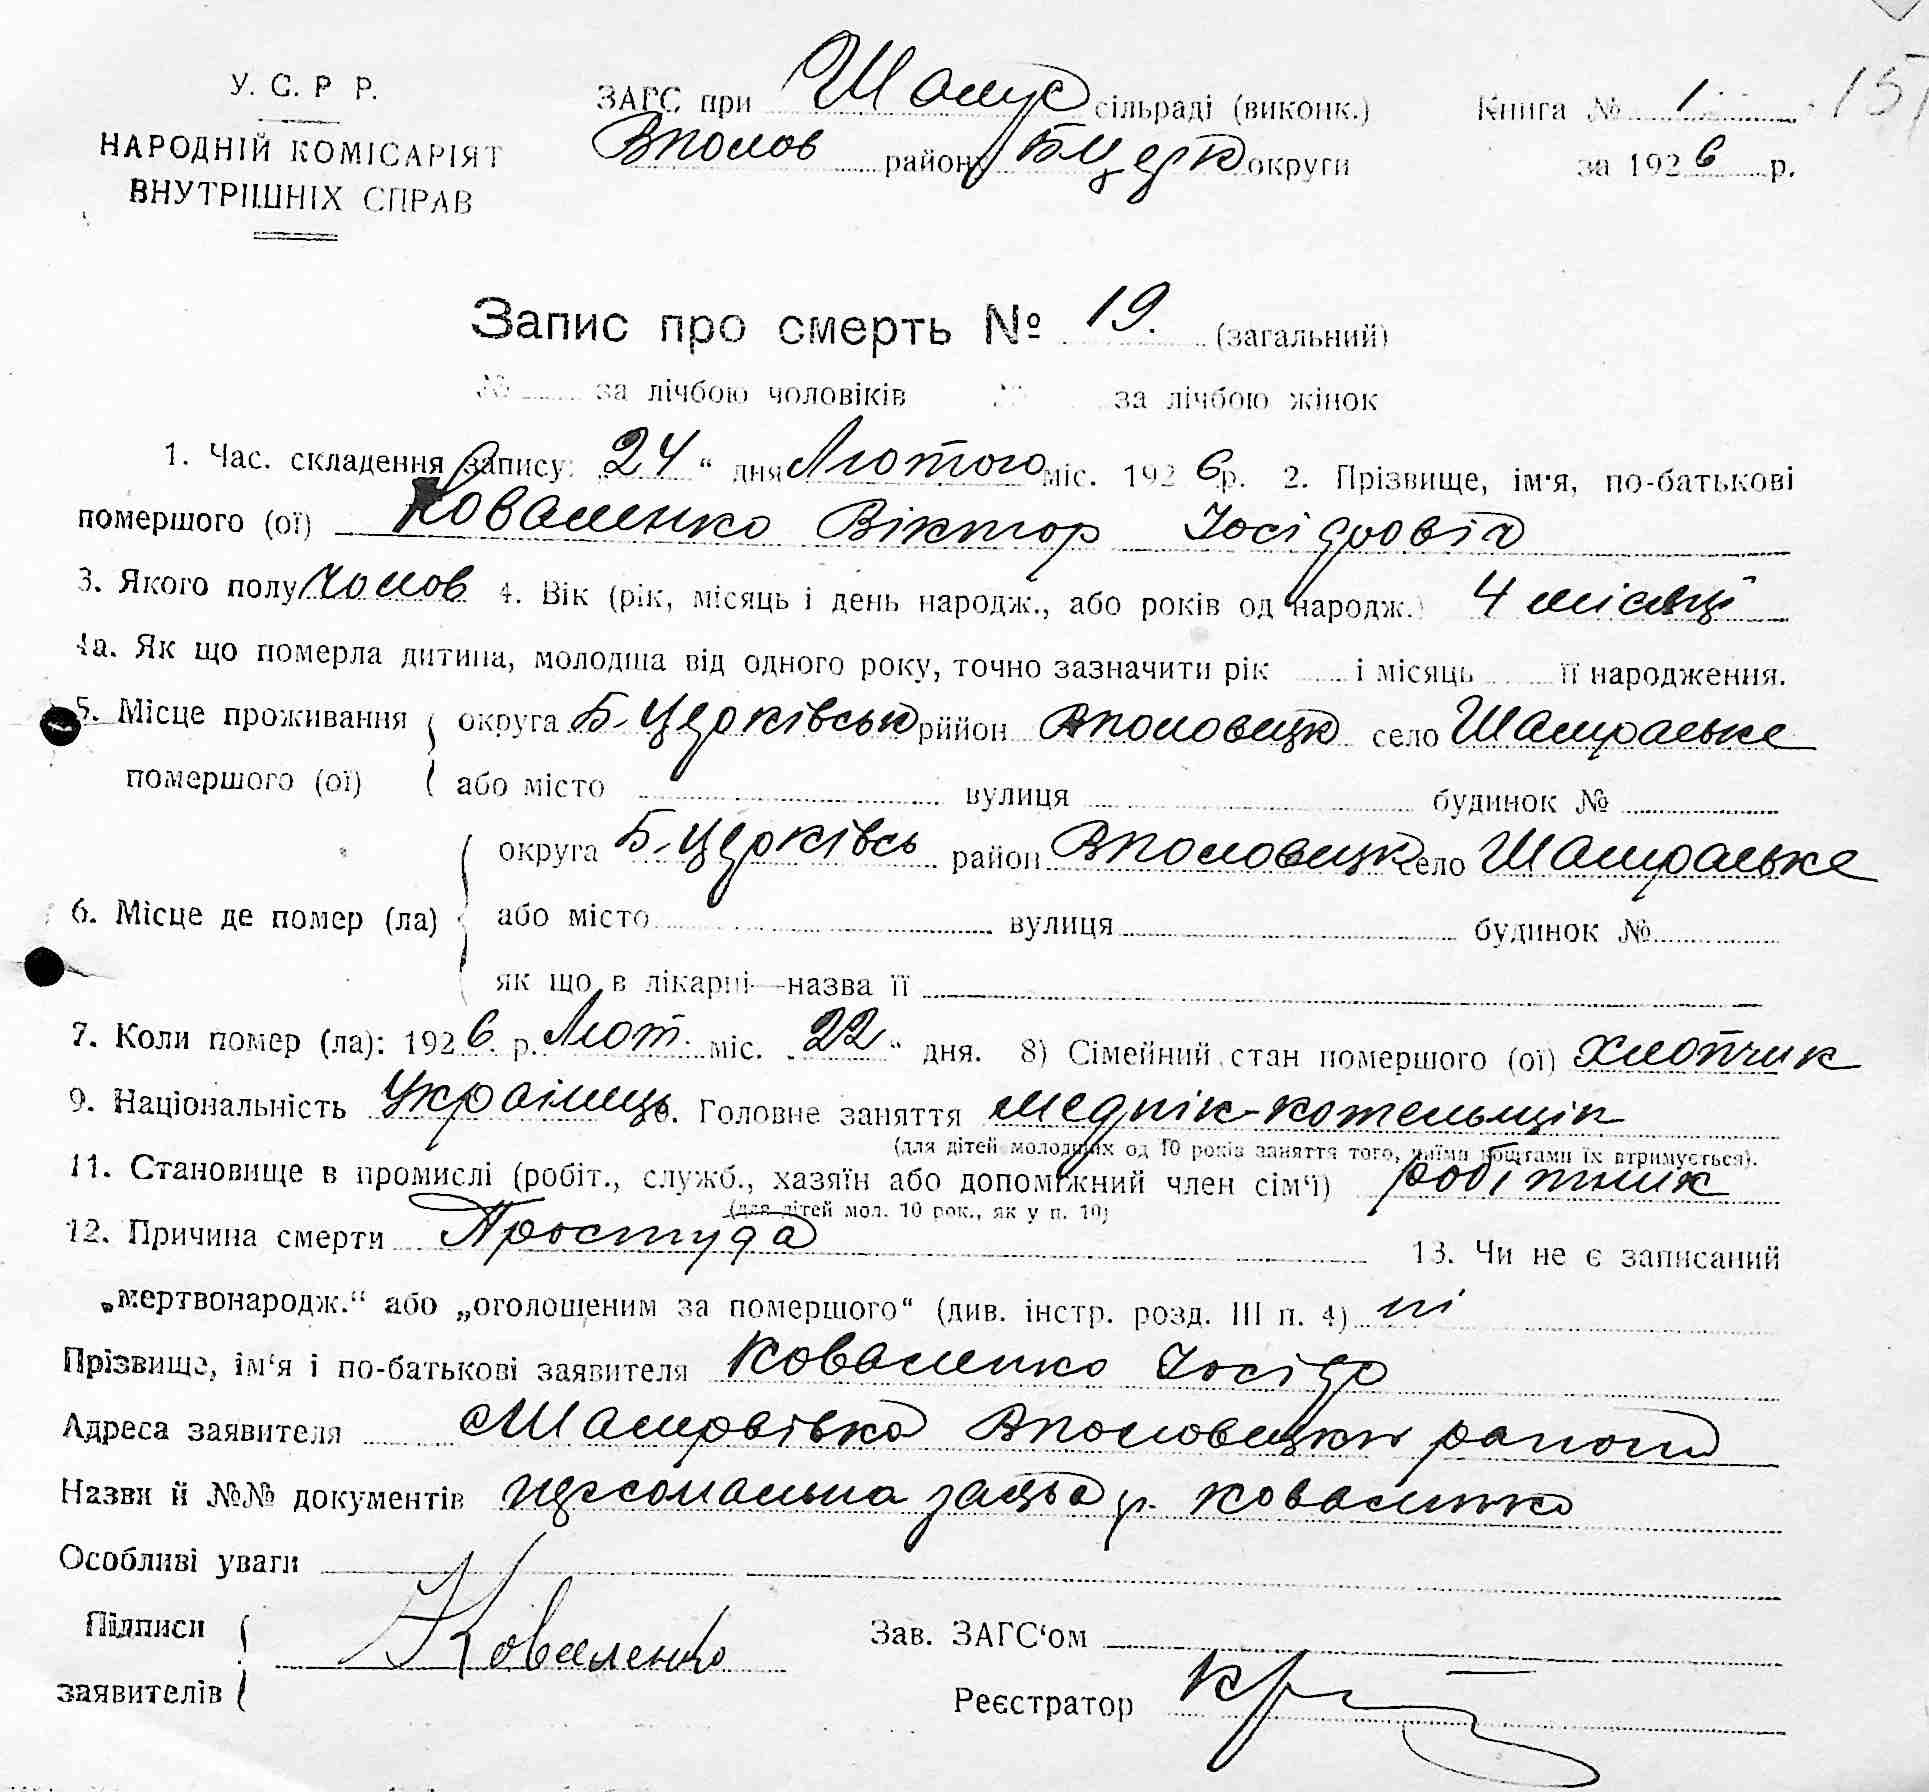 У. С. Р Р.
НАРОДНІЙ КОМІСАРІЯТ
ВНУТРІШНІХ СПРАВ
ЗАГС при Шамр сільраді (виконк.)
Вполов району БЦерк округи
Книга № 1
за 1926 р.
15
Запис про смерть № 19. (загальний)
№ за лічбою чоловіків № за лічбою жінок
1. Час. складення запису: 24 “ дня Лютого міс. 1926 р. 2. Прізвище, ім'я, по-батькові
помершого (ої) Коваленко Віктор Іосіфовіч
3. Якого полу чолов 4. Вік (рік, місяць і день народж., або років од народж.) 4 місяці
4а. Як що померла дитина, молодша від одного року, точно зазначити рік і місяць її народження.
5. Місце проживання округа Б-Церківськ рийон Вполовецк село Шамральке
помершого (ої) або місто вулиця будинок №
округа Б-Церківсь район Вполовецк село Шамральке
6. Місце де помер (ла) або місто вулиця будинок №
як що в лікарні—назва її
7. Коли помер (ла): 1926 р. Лют. міс. „22“ дня. 8) Сімейний стан помершого (ої) хлопчик
9. Національність Українець 10. Головне заняття Меднік-котельщік
(для дітей молодших од 10 років заняття того, чиїми коштами їх втримується).
11. Становище в промислі (робіт., служб., хазяїн або допоміжний член сім'ї) робітник
(для дітей мол. 10 рок., як у п. 10)
12. Причина смерти Простуда 13. Чи не є записаний
„мертвонародж.“ або „оголошеним за помершого“ (див. інстр. розд. III п. 4) ні
Прізвище, ім'я і по-батькові заявителя Коваленко Іосіф
Адреса заявителя Шамрівка Вполовецки район
Назви й №№ документів персонально Коваленко
Особливі уваги
Підписи Коваленко Зав. ЗАГС'ом
заявителів Реєстратор